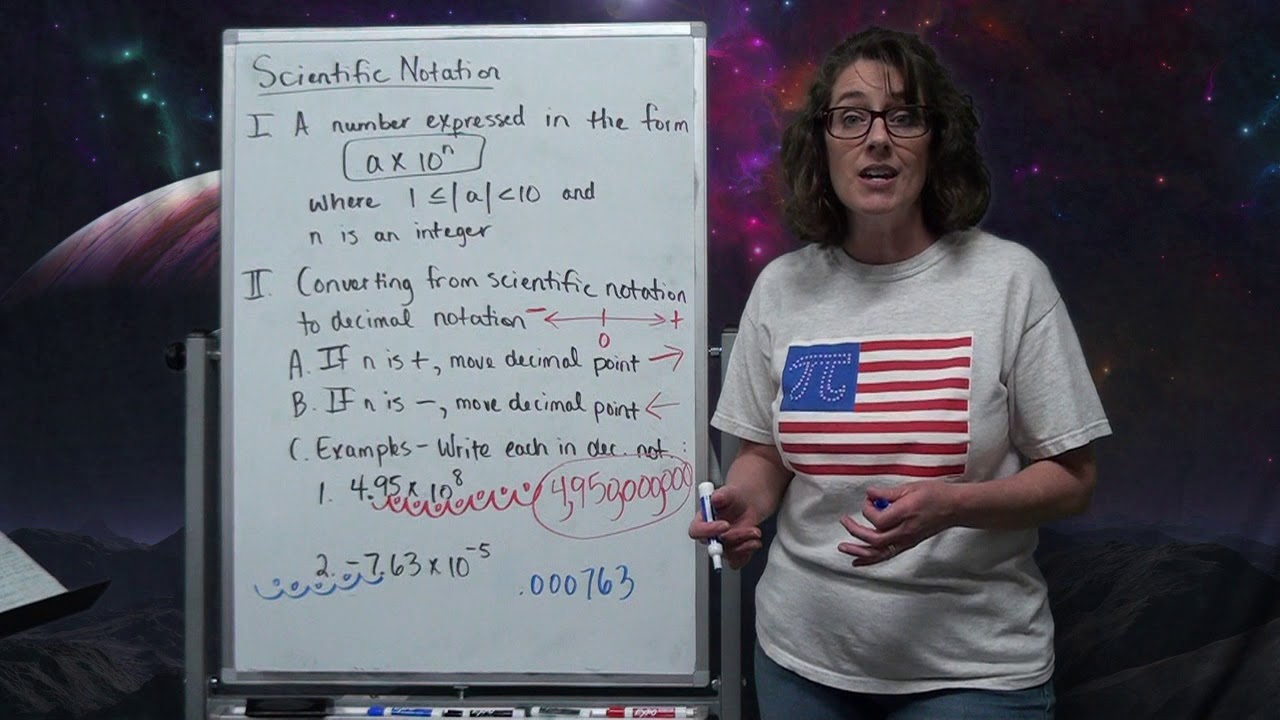 Scientific Notation
I A number expressed in the form
a x 10ⁿ
where 1 ≤ |a| < 10 and
n is an integer
II. Converting from scientific notation
to decimal notation - ←→ +
0
A. If n is +, move decimal point →
B. If n is −, move decimal point ←
C. Examples – Write each in dec. not. :
1. 4.95 x 10⁸ 4,950,000,000
2. −7.63 x 10⁻⁵ .000763
π
EXPO